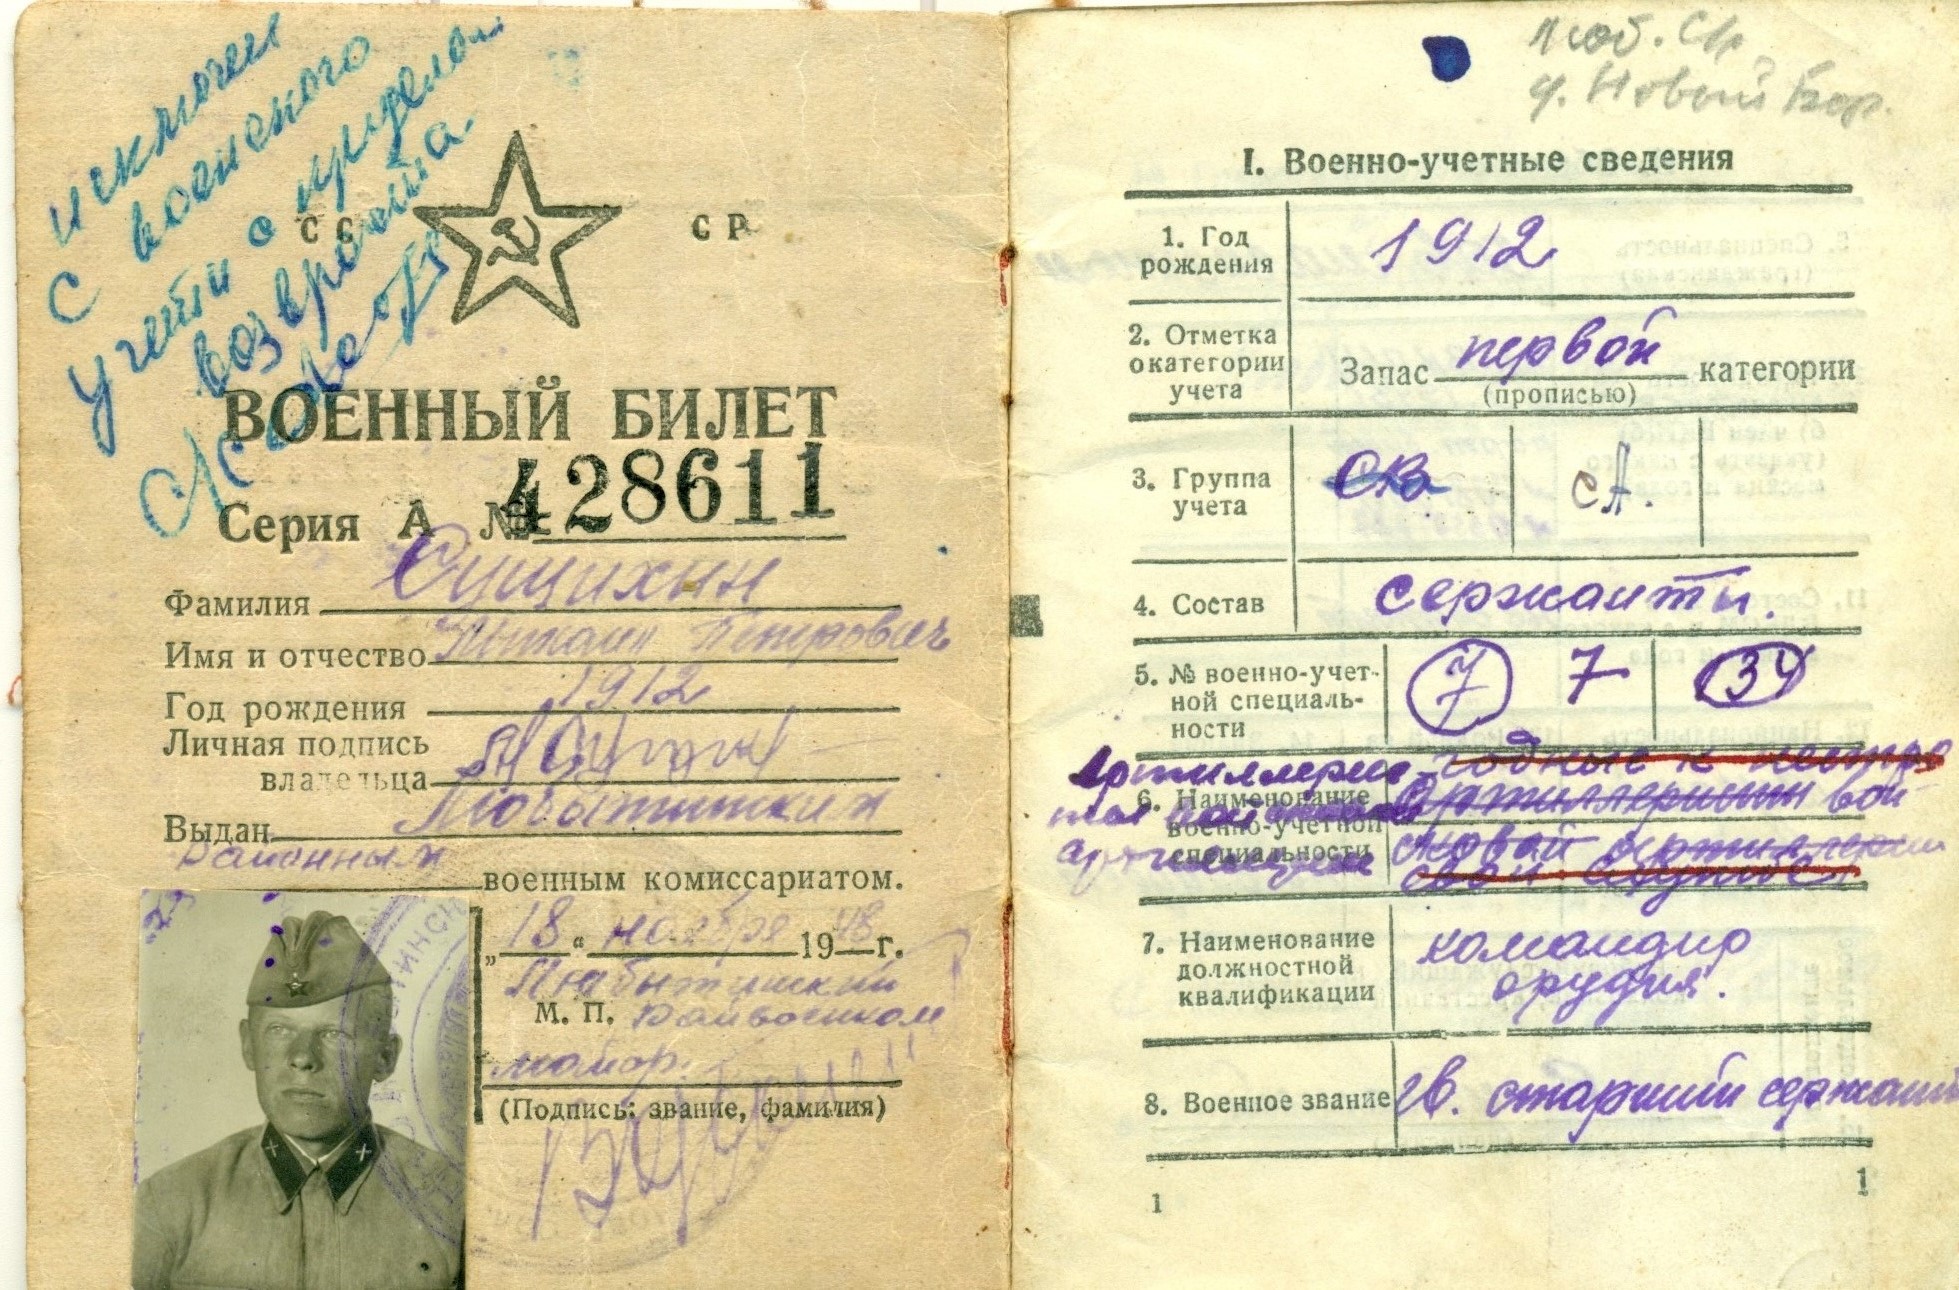 исключен
с военного
учёта с пределом
возвроста
СС СР
ВОЕННЫЙ БИЛЕТ
Серия А № 428611
Фамилия Сущихин
Имя и отчество Михаил Петрович
Год рождения 1912
Личная подпись
владельца
Выдан Любытинским
районным
военным комиссариатом.
„18“ ноября 1948 г.
Любытинский
М. П. Райвоенком
майор
(Подпись: звание, фамилия)
Люб. СА
д. Новый Бор.
I. Военно-учетные сведения
1. Год
рождения
1912
2. Отметка
о категории
учета
Запас первой категории
(прописью)
3. Группа
учета
СА.
4. Состав
сержанты.
5. № военно-учет-
ной специаль-
ности
7 7 134
6. Наименование
военно-учетной
специальности
годные к нестро
вой службе
7. Наименование
должностной
квалификации
командир
орудия.
8. Военное звание гв. старший сержант
1
1